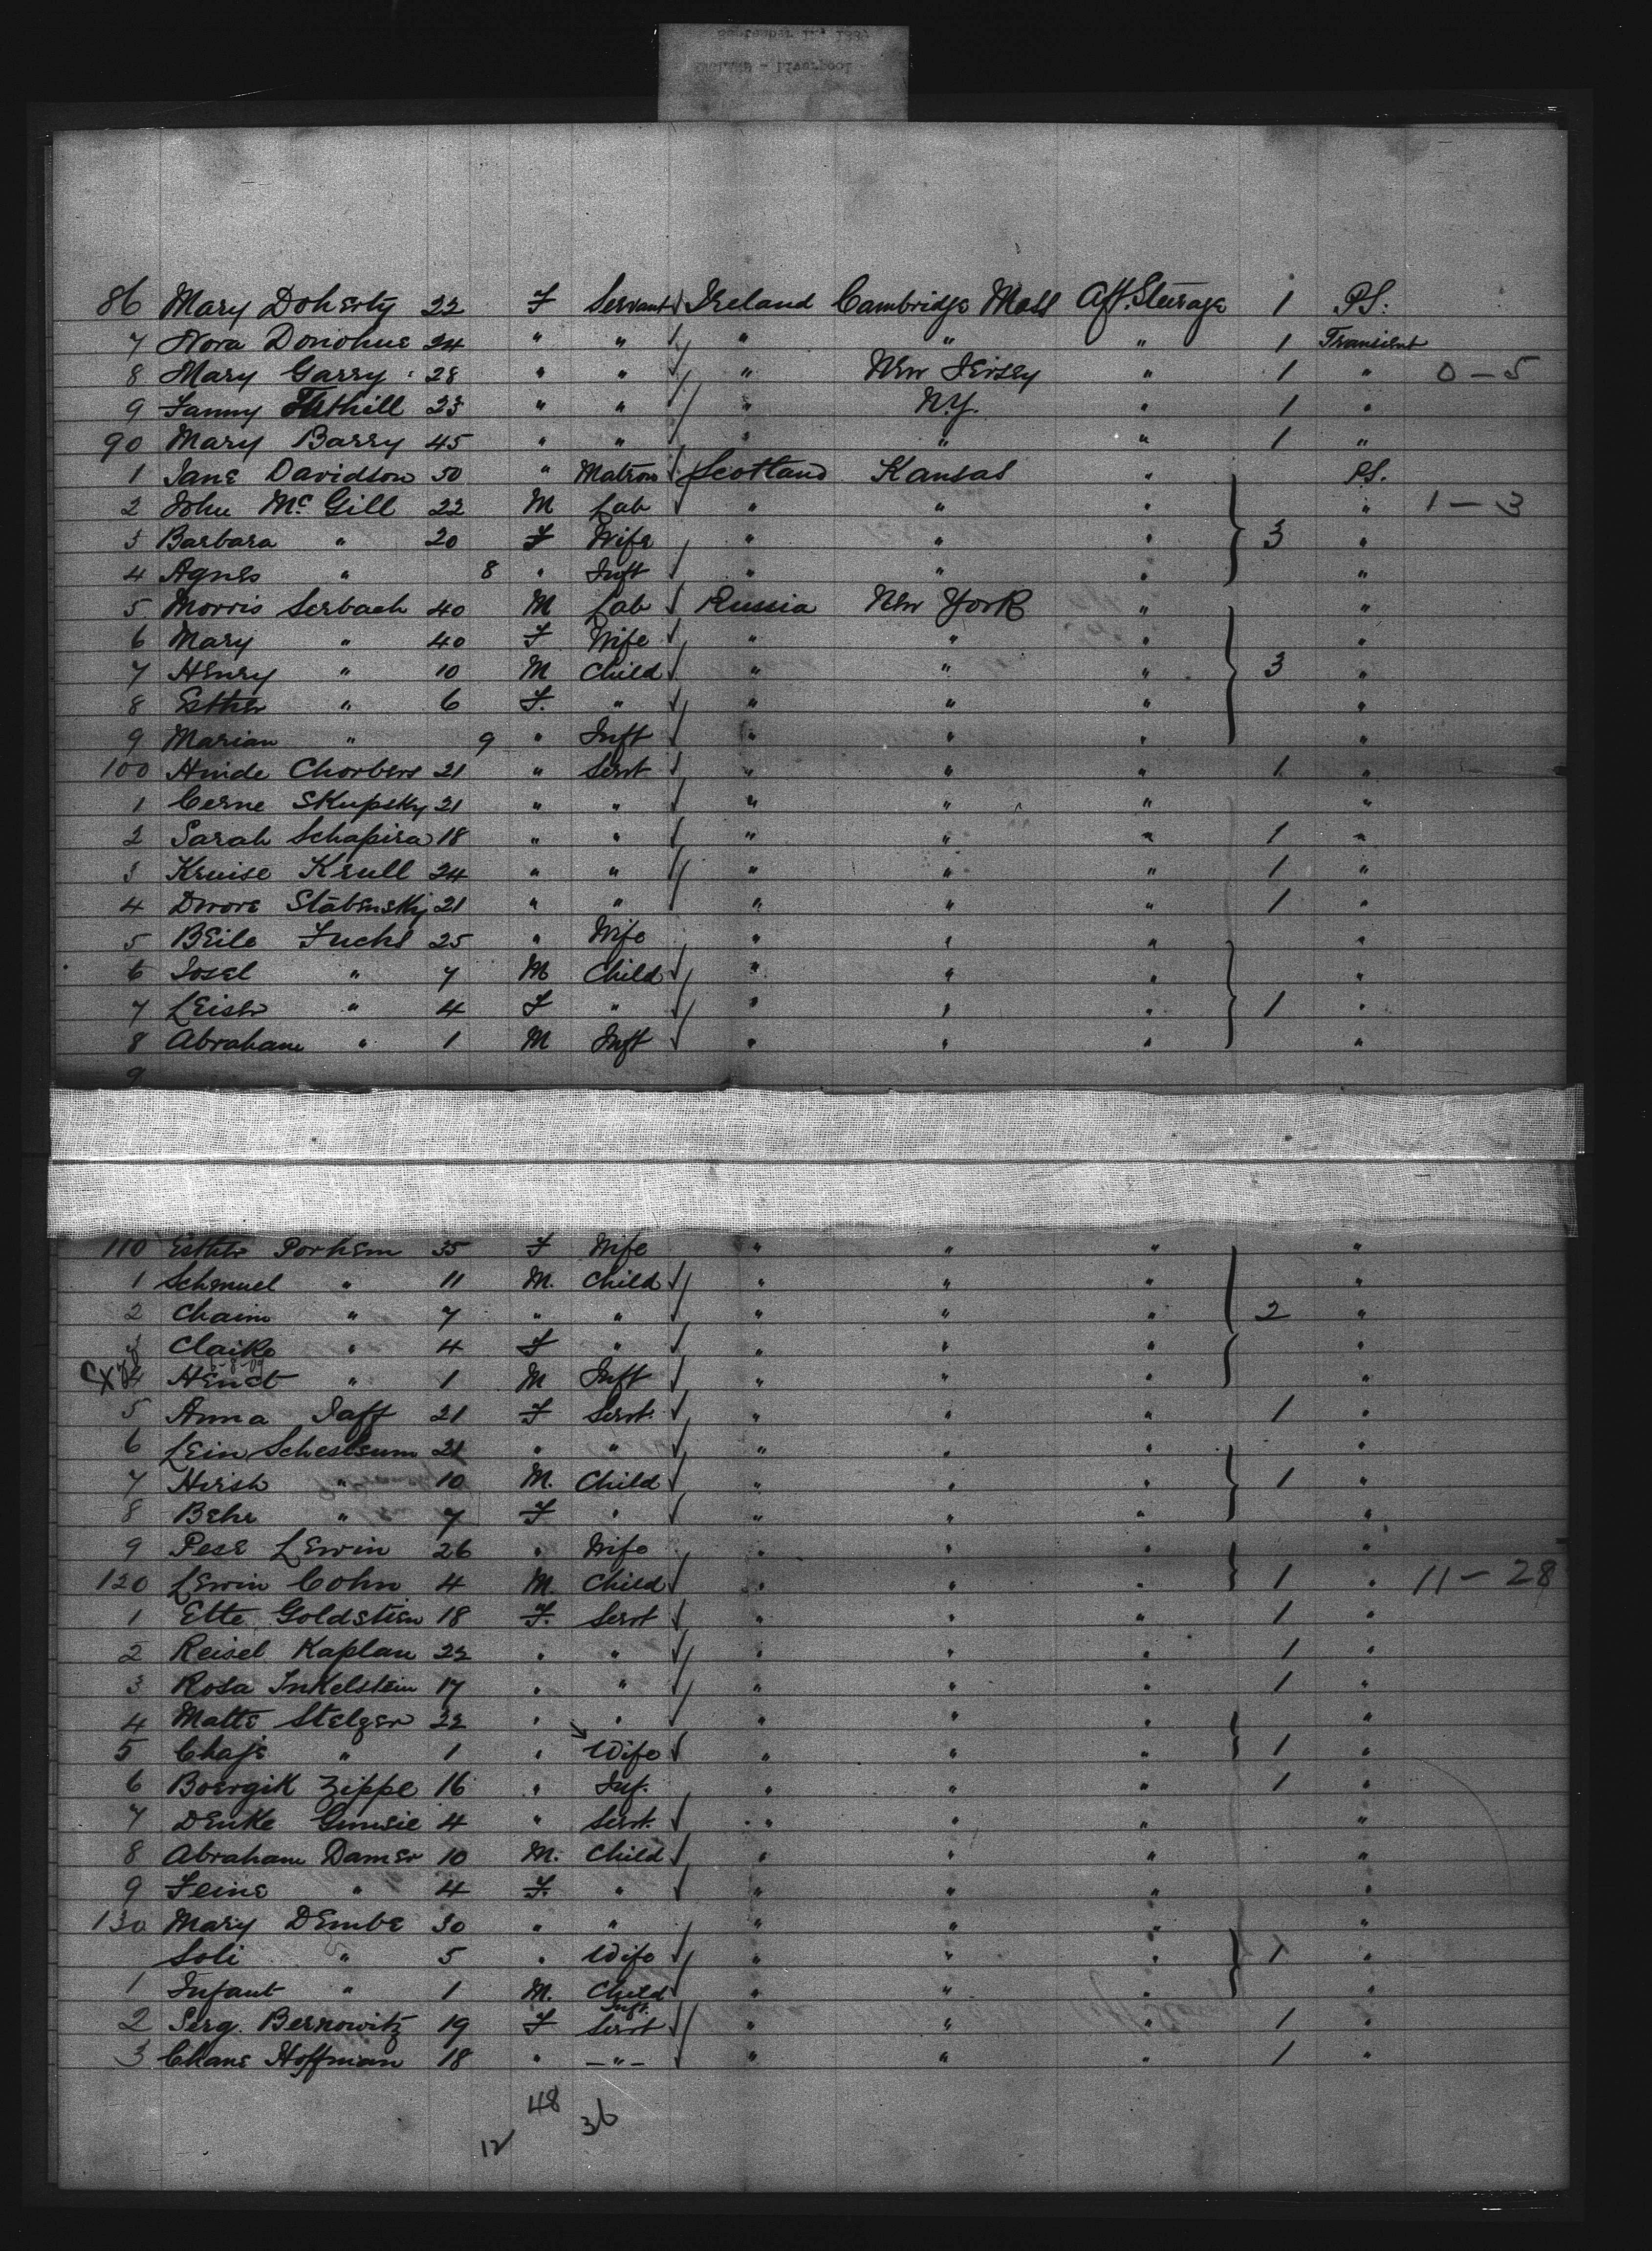 86 Mary Doherty 22 F Servant Ireland Cambridge Mass Aft. Steerage 1 P.S.
7 Nora Donohue 24 " " " " " 1 Transient
8 Mary Garry 28 " " " New Jersey " 1 " 0-5
9 Fanny 23 " " " N.Y. " 1 "
90 Mary Barry 45 " " " " " 1 "
1 Jane Davidson 50 " Matron Scotland Kansas " P.S.
2 John McGill 22 M Lab " " " " 1-3
3 Barbara " 20 F Wife " " " 3 "
4 Agnes " 8 " Inft " " " "
5 Morris Serbach 40 M Lab Russia New York " "
6 Mary " 40 F Wife " " " "
7 Henry " 10 M Child " " " 3 "
8 Esther " 6 F. " " " " "
9 Marian " 9 " Inft " " " "
100 Hinde Chorbers 21 " Servt " " " 1 "
1 Cerne Skupsky 21 " " " " " "
2 Sarah Schapira 18 " " " " " 1 "
3 Kruise Krull 24 " " " " " 1 "
4 Dwore Stabensky 21 " " " " " 1 "
5 Beile Fuchs 25 " Wife " " " "
6 Josel " 7 M Child " " " "
7 Leish " 4 F " " " " 1 "
8 Abraham " 1 M Inft " " " "
9
110 Esther Porhem 35 F Wife " " " "
1 Schmuel " 11 M. Child " " " "
2 Chaim " 7 " " " " " 2 "
3 Claike " 4 F " " " " "
4 " 1 M Inft " " " "
5 Anna Jaff 21 F Servt. " " " 1 "
6 Lein 21 " " " " " "
7 Hirsh " 10 M. Child " " " 1 "
8 Behr " 7 F " " " " "
9 Pese Lewin 26 " Wife " " " "
120 Lewin Cohn 4 M. Child " " " 1 " 11-28
1 Ette Goldstien 18 F. Servt " " " 1 "
2 Reisel Kaplan 22 " " " " " 1 "
3 Rosa Inkelstein 17 " " " " " 1 "
4 Matte Stelzer 22 " " " " " "
5 Chaje " 1 " Wife " " " 1 "
6 Boergik Zippe 16 " Inf. " " " 1 "
7 Denke 4 " Servt. " " " "
8 Abraham Damer 10 M. Child " " " "
9 Feine " 4 F. " " " " "
130 Mary Dembe 30 " " " " " "
Soli " 5 " Wife " " " 1 "
1 Infant " 1 M. Child Inft. " " " "
2 Serg. Bernowitz 19 F Servt " " " 1 "
3 Chane Hoffman 18 " -"- " " " 1 "
48
36
12